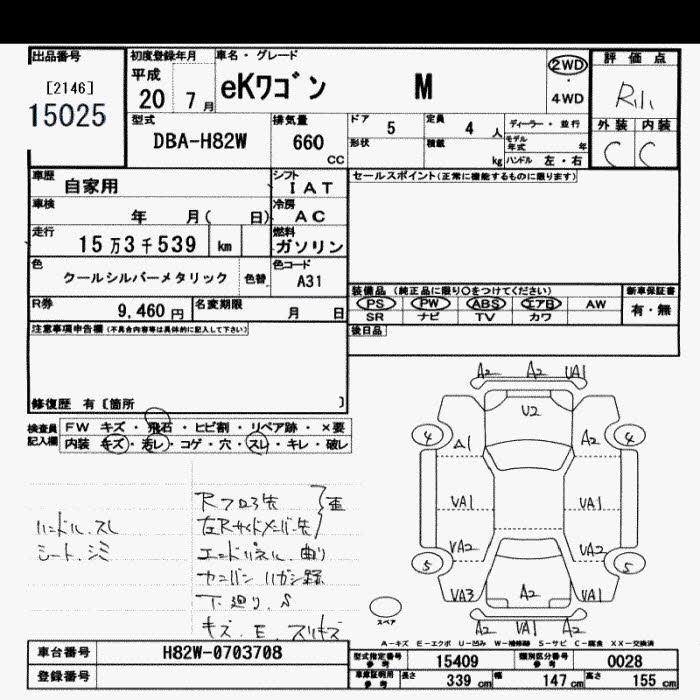 出品番号
[2146]
15025
初度登録年月
平成
20 7月
車名・グレード
eKワゴン M
2WD
・
4WD
評価点
外装 内装
C C
型式
DBA-H82W
排気量
660
CC
ドア 5
定員 4 人
形状
積載 kg
ディーラー・並行
モデル年式 年
ハンドル 左・右
車歴 自家用
シフト
IAT
車検 年 月( 日)
冷房
AC
走行 15万3千539 km
燃料
ガソリン
色 クールシルバーメタリック 色替
色コード
A31
R券 9,460円
名変期限 月 日
セールスポイント(正常に機能するものに限ります)
装備品 (純正品に限り○をつけてください)
新車保証書
PS PW ABS エアB AW
有・無
SR ナビ TV カワ
後日品
注意事項申告欄 (不具合内容等は具体的に記入して下さい)
修復歴 有〔箇所 〕
検査員記入欄
FW キズ・飛石・ヒビ割・リペア跡・×要
内装 キズ・汚レ・コゲ・穴・スレ・キレ・破レ
ハンドル.スレ
シート.シミ
エンドパネル.曲り
下廻り.S
キズ.E.スリキズ
A2 A2 UA1
U2
4 A1 A2 4
VA1 VA1
VA2 VA2
5 5
VA3 A2 VA1
UA1 A2
スペア
A-キズ E-エクボ U-凹み W-補修跡 S-サビ C-腐食 XX-交換済
車台番号 H82W-0703708
登録番号
型式指定番号 参考 15409
類別区分番号 参考 0028
車庫証明用 参考
長さ 339 cm 幅 147 cm 高さ 155 cm